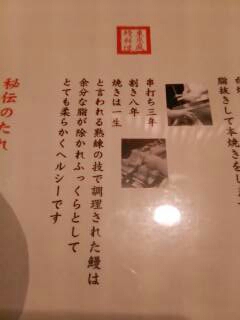 脂抜きして本焼きをし
串打ち三年
割き八年
焼きは一生
と言われる熟練の技で調理された鰻は
余分な脂が除かれふっくらとして
とても柔らかくヘルシーです
秘伝のたれ